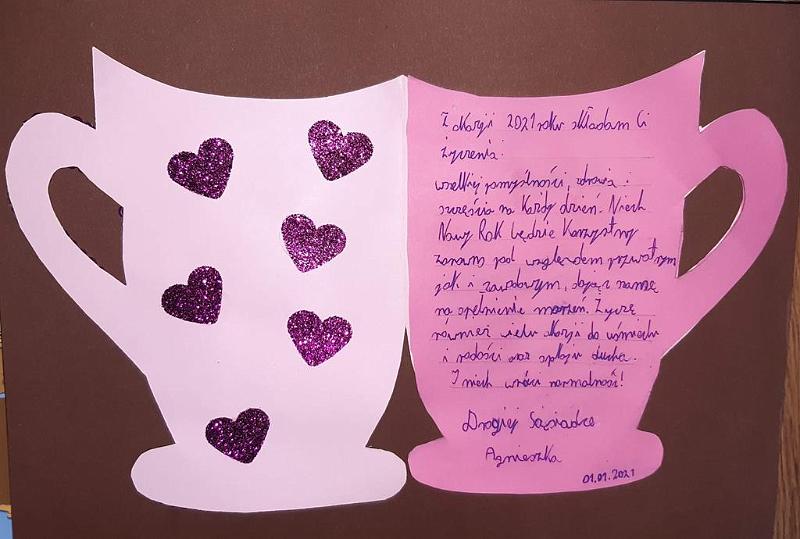 Z okazji 2021 roku składam Ci
życzenia:
wszelkiej pomyślności, zdrowia i
szczęścia na każdy dzień. Niech
Nowy Rok będzie korzystny
zarówno pod względem prywatnym
jak i zawodowym, dając szansę
na spełnienie marzeń. Życzę
również wielu okazji do uśmiechu
i radości oraz spokoju ducha.
I niech wróci normalność!
Drogiej Sąsiadce
Agnieszka
01.01.2021